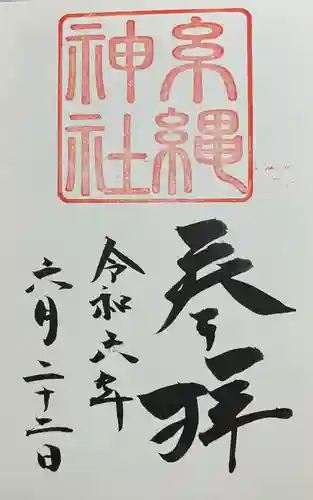 糸縄
神社
参拝
令和六年
六月二十二日